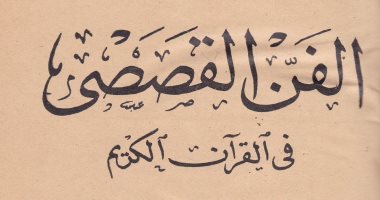 الفَنّ القَصَصى
فى القرآن الكريم